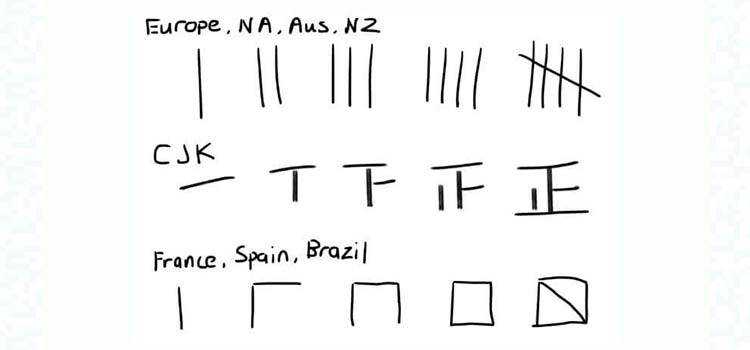 Europe, NA, Aus, NZ
CJK
一 丅 下 正
France, Spain, Brazil